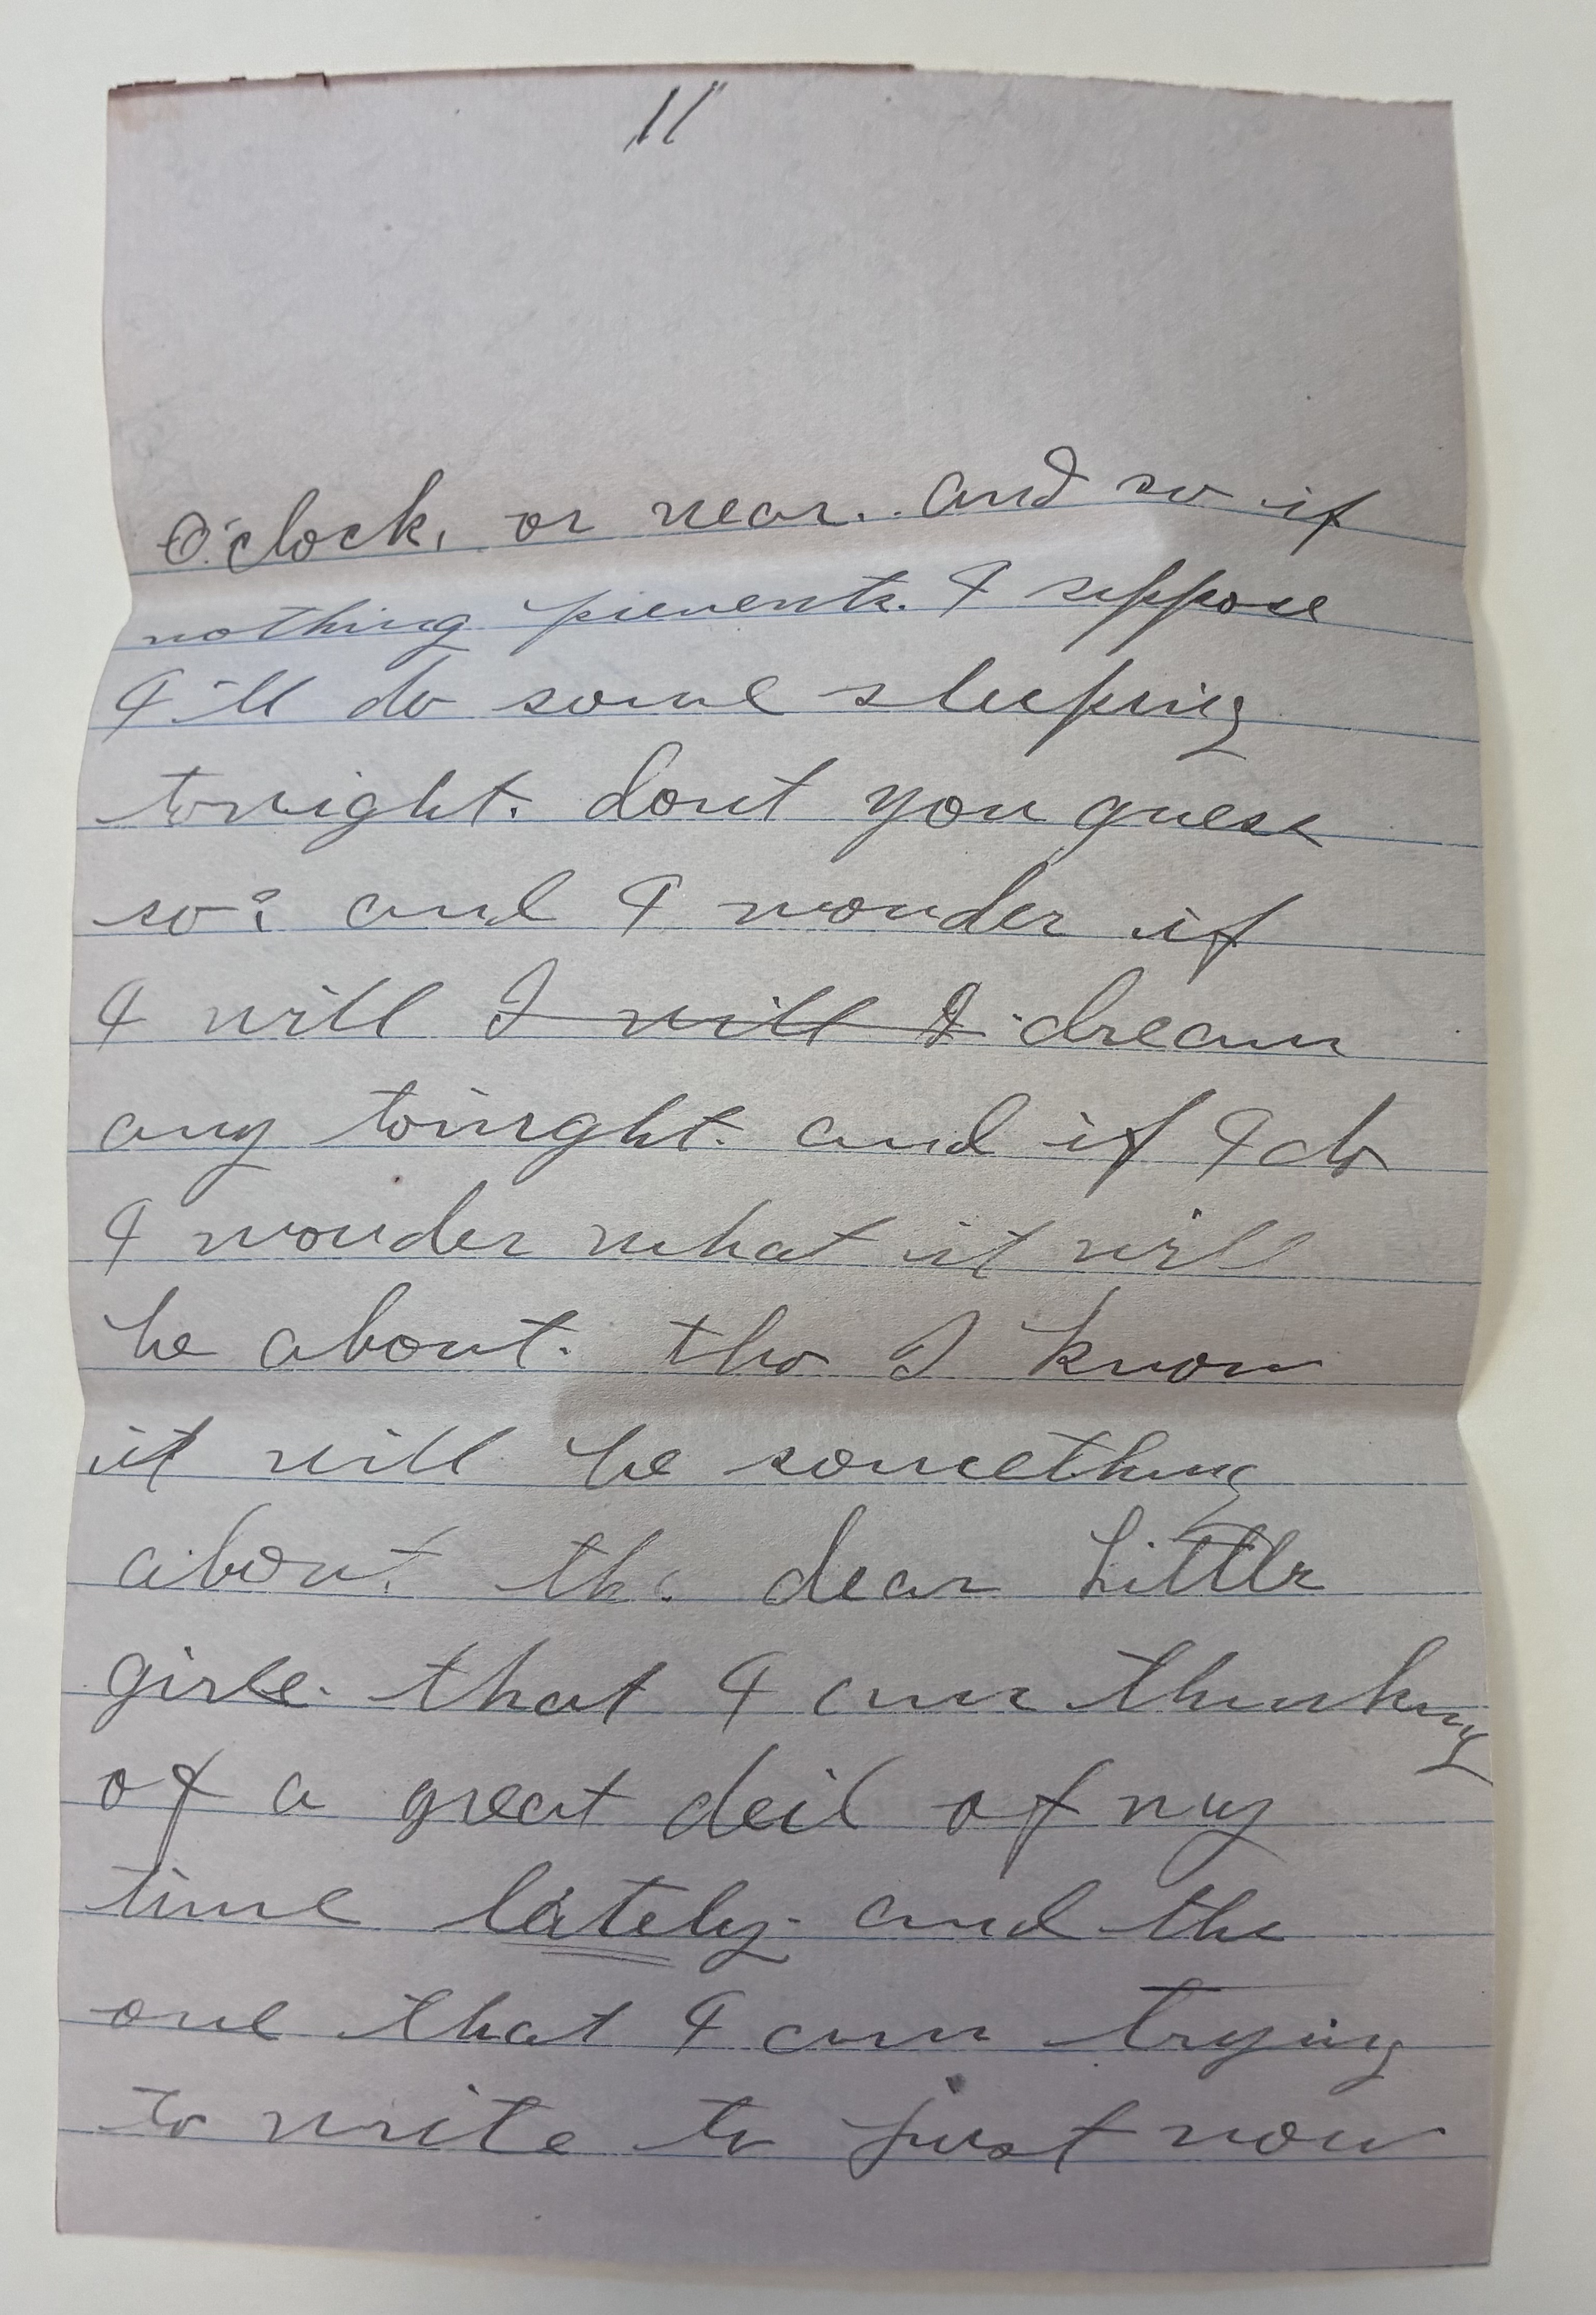 11
O'clock, or near. and so if
nothing prevents. I suppose
I'll do some sleeping
tonight. dont you guess
so? and I wonder if
I will I will I dream
any toinght. and if I do
I wonder what it will
be about. tho I know
it will be something
about the dear Little
girle. that I am thinking
of a great deil of my
time lately. and the
one that I am trying
to write to just now